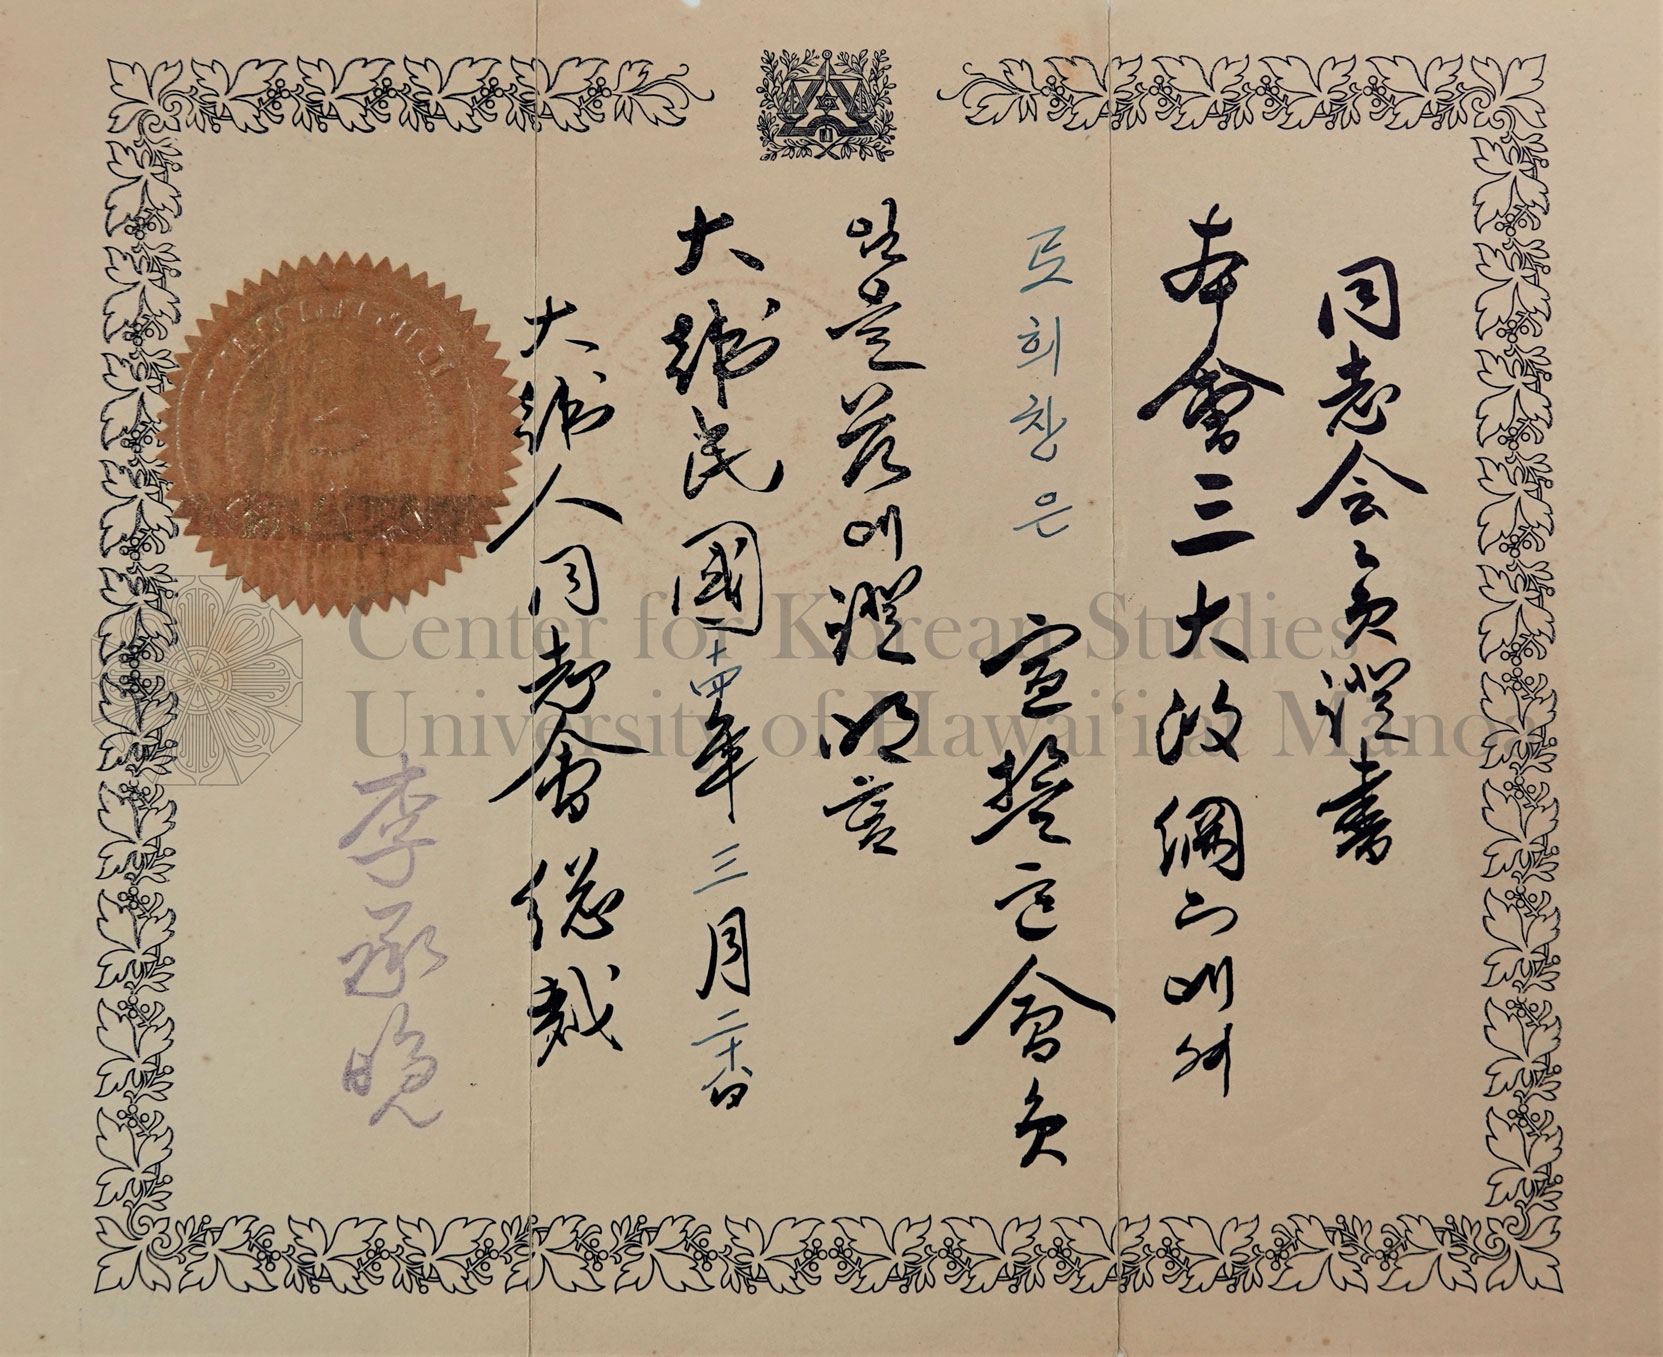 同志会々員證書
本會三大政綱의대하
도희창은 宣誓한會員
임을玆에證明홈
大韓民國二十四年三月二十六日
大韓人同志會總裁
李承晩
Center for Korean Studies
University of Hawai‘i at Manoa